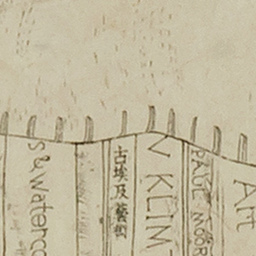 s & waterco
古埃及藝術
N KLIMT
PAUL MOOR
Art